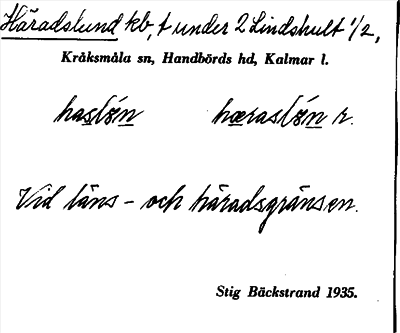 Häradslund kb, t under 2 Lindshult 1/2,
Kråksmåla sn, Handbörds hd, Kalmar l.
r.
Vid läns- och häradsgränsen.
Stig Bäckstrand 1935.